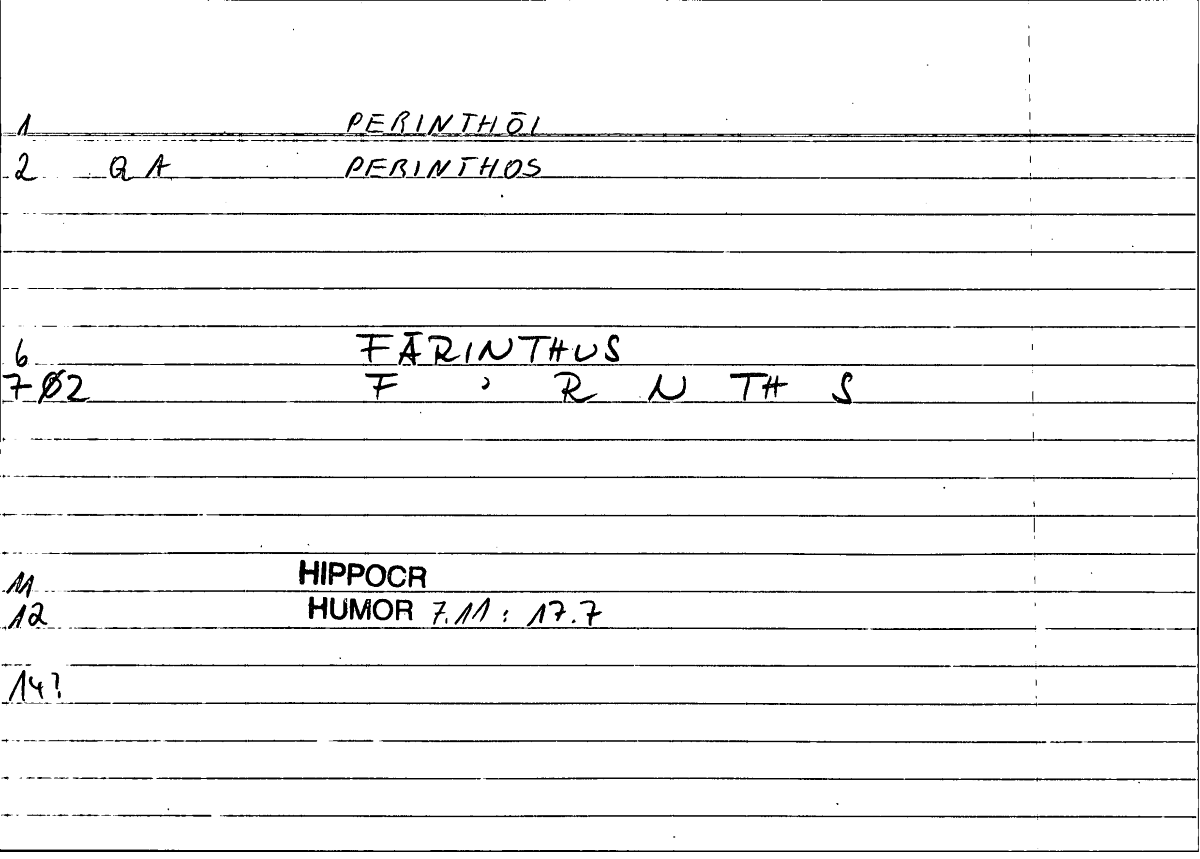 1 PERINTHŌI
2 Q A PERINTHOS
6 FĀRINTHUS
7 Ø2 F ʾ R N TH S
11 HIPPOCR
12 HUMOR 7.11 : 17.7
14?